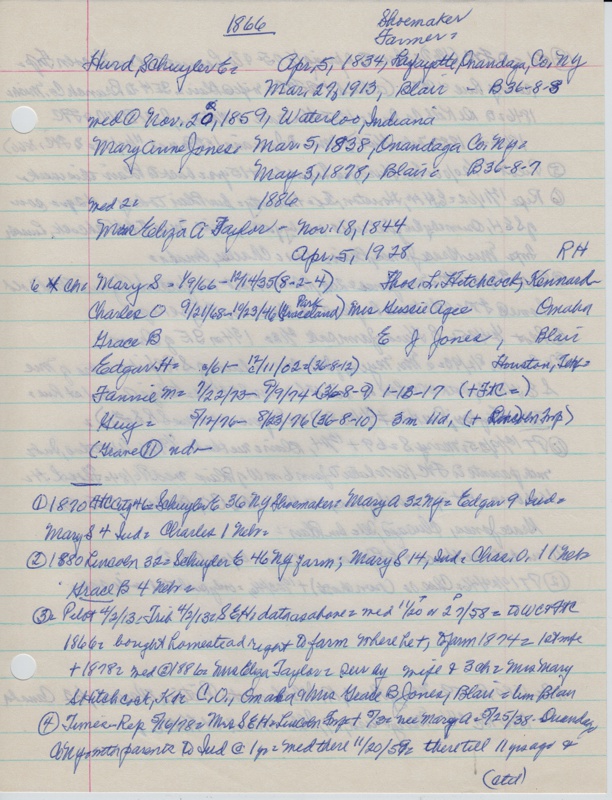 1866
Shoemaker
Farmer =
Hurd, Schuyler E = Apr, 5, 1834, Lafayette, Onandaga, Co, NY
Mar. 27, 1913, Blair - B36-8-8
med @ Nov. 20, 1859, Waterloo, Indiana
Mary Anne Jones, Mar. 5, 1838, Onandaga Co. NY =
May 3, 1878, Blair = B36-8-7
med 2 = 1886
Mrs Eliza A Taylor - Nov. 18, 1844
Apr. 5, 1928 RH
6 * Ch: Mary S = 1/9/66 - 12/14/35 (8-2-4) Thos. L. Hitchcock, Kennard
Charles O 9/21/68 - 10/23/46 (Graceland Park) Mrs Gussie Agee Omaha
Grace B E J Jones, Blair
Edgar H = /61 - 12/11/02 = (36-8-12) Houston, Tex =
Fannie M = 7/22/73 - 9/9/74 (36-8-9) 1-18-17 (+ FtC =)
Guy = 5/12/76 - 8/23/76 (36-8-10) 3m 11d, (+ Lincoln Twp)
(Grave 11) nd -
① 1870 FtC Cty 46 = Schuyler E 36 NY Shoemaker: Mary A 32 NY = Edgar 9 Ind =
Mary S 4 Ind = Charles 1 Neb =
② 1880 Lincoln 32 = Schuyler E 46 NY farm; Mary S 14, Ind: Chas. O. 11 Neb
Grace B 4 Neb =
③ Pilot 4/2/13 = Trib 4/2/13 = S E H, data as above = med 11/20 or 27/58 = To WC + FtC
1866 = bought homestead right to farm where he +, to farm 1874 = 1st wife
+ 1878 = med @ 1886 = Mrs Eliza Taylor = surv by wife & 3 ch = Mrs Mary
S Hitchcock, K & C, O, Omaha & Mrs Grace B Jones, Blair = bur Blair
④ Times-Rep 5/16/78 = Mrs S E H = Lincoln Twp + 5/3 = nee Mary A = 5/25/38 - Onandaga
Co NY with parents to Ind @ 1 yr = med there 11/20/59 = there till 11 yrs ago &
(ctd)